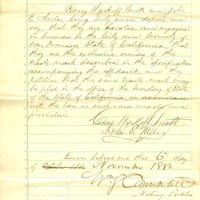 Henry Wyckoff Smith and John
E. Miley, being duly sworn depose and
say, that they are located and engaged
in business in the City and County of
San Francisco State of California, that
they are the exclusive owners of the
trade mark described in the specification
accompanying this affidavit, and they
petition that the said trade mark may
be filed in the office of the Secretary of State
of the State of California in accordance
with the law in such cases made and
provided.
Henry Wyckoff Smith
John E. Miley
Sworn before me this 6 day
of November 1880
Wm Campbell
Notary Public